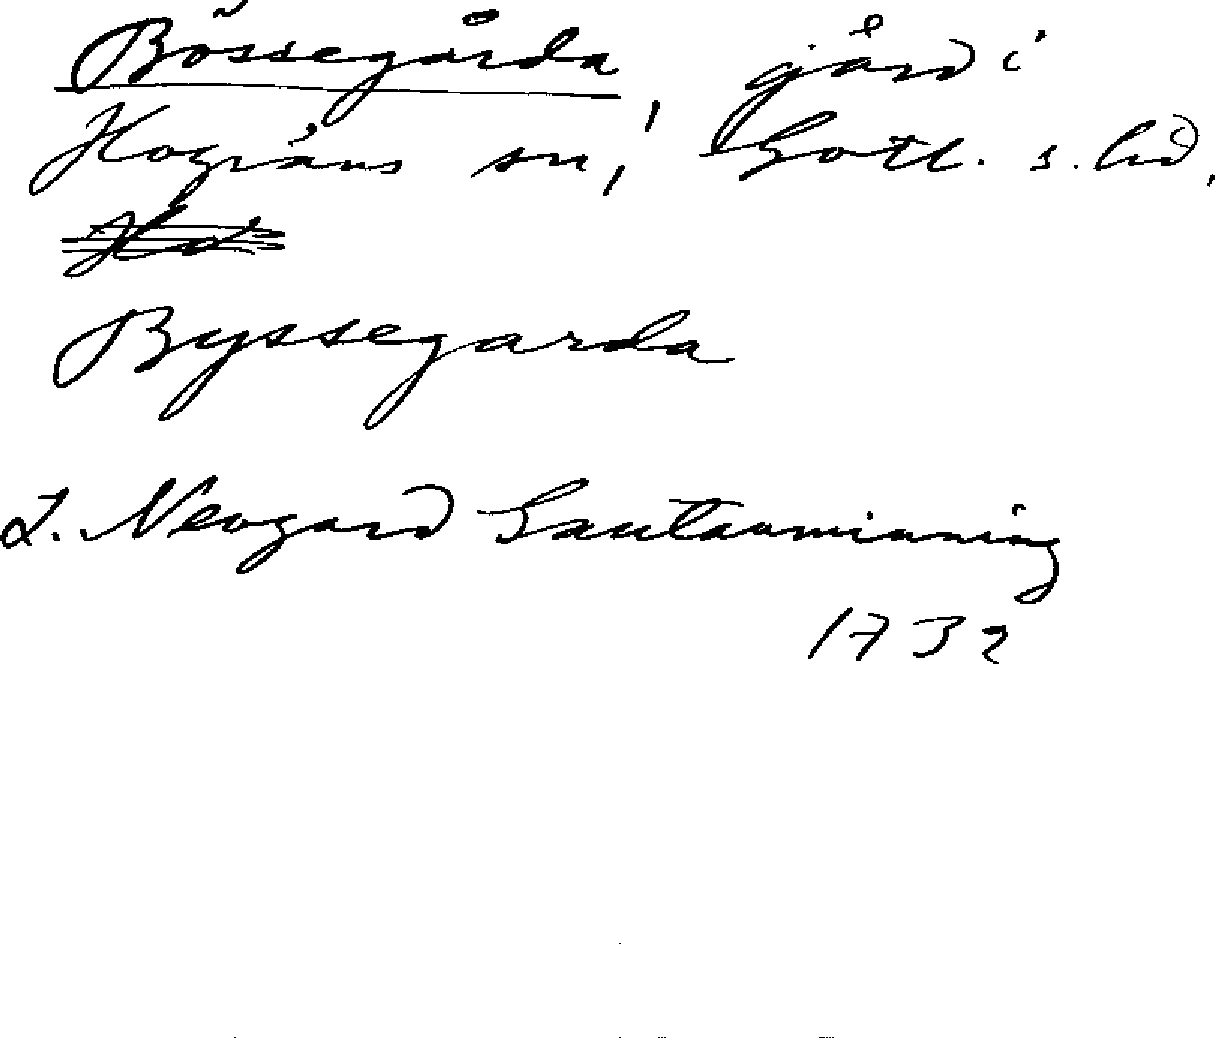 Bössegårda, gård i
Hogräns sn, Gotl. s. hd,
Byssegarda
L. Neogard Gautauminning
1732